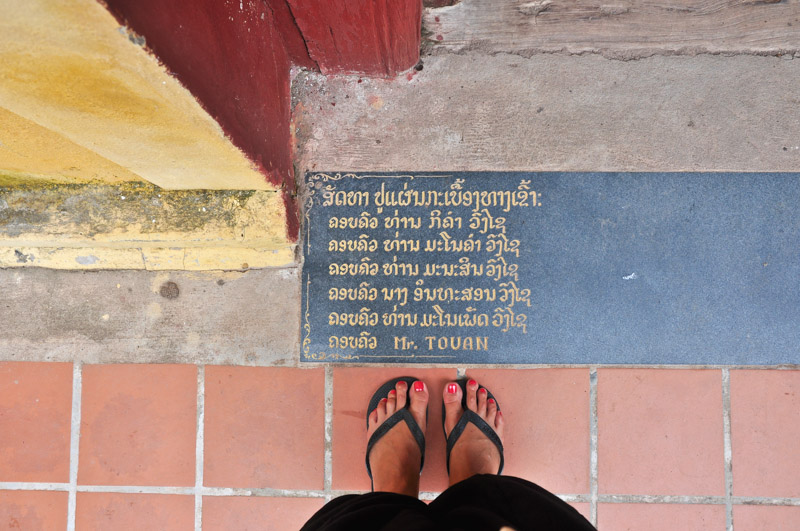 ສັດທາ ປູແຜ່ນກະເບື້ອງທາງເຂົ້າ:
ຄອບຄົວ ທ່ານ ກິຄຳ ວົງໄຊ
ຄອບຄົວ ທ່ານ ມະໂນຄຳ ວົງໄຊ
ຄອບຄົວ ທ່ານ ມະນະສິນ ວົງໄຊ
ຄອບຄົວ ນາງ ອິນທະສອນ ວົງໄຊ
ຄອບຄົວ ທ່ານ ມະໂນເພັດ ວົງໄຊ
ຄອບຄົວ Mr. TOUAN